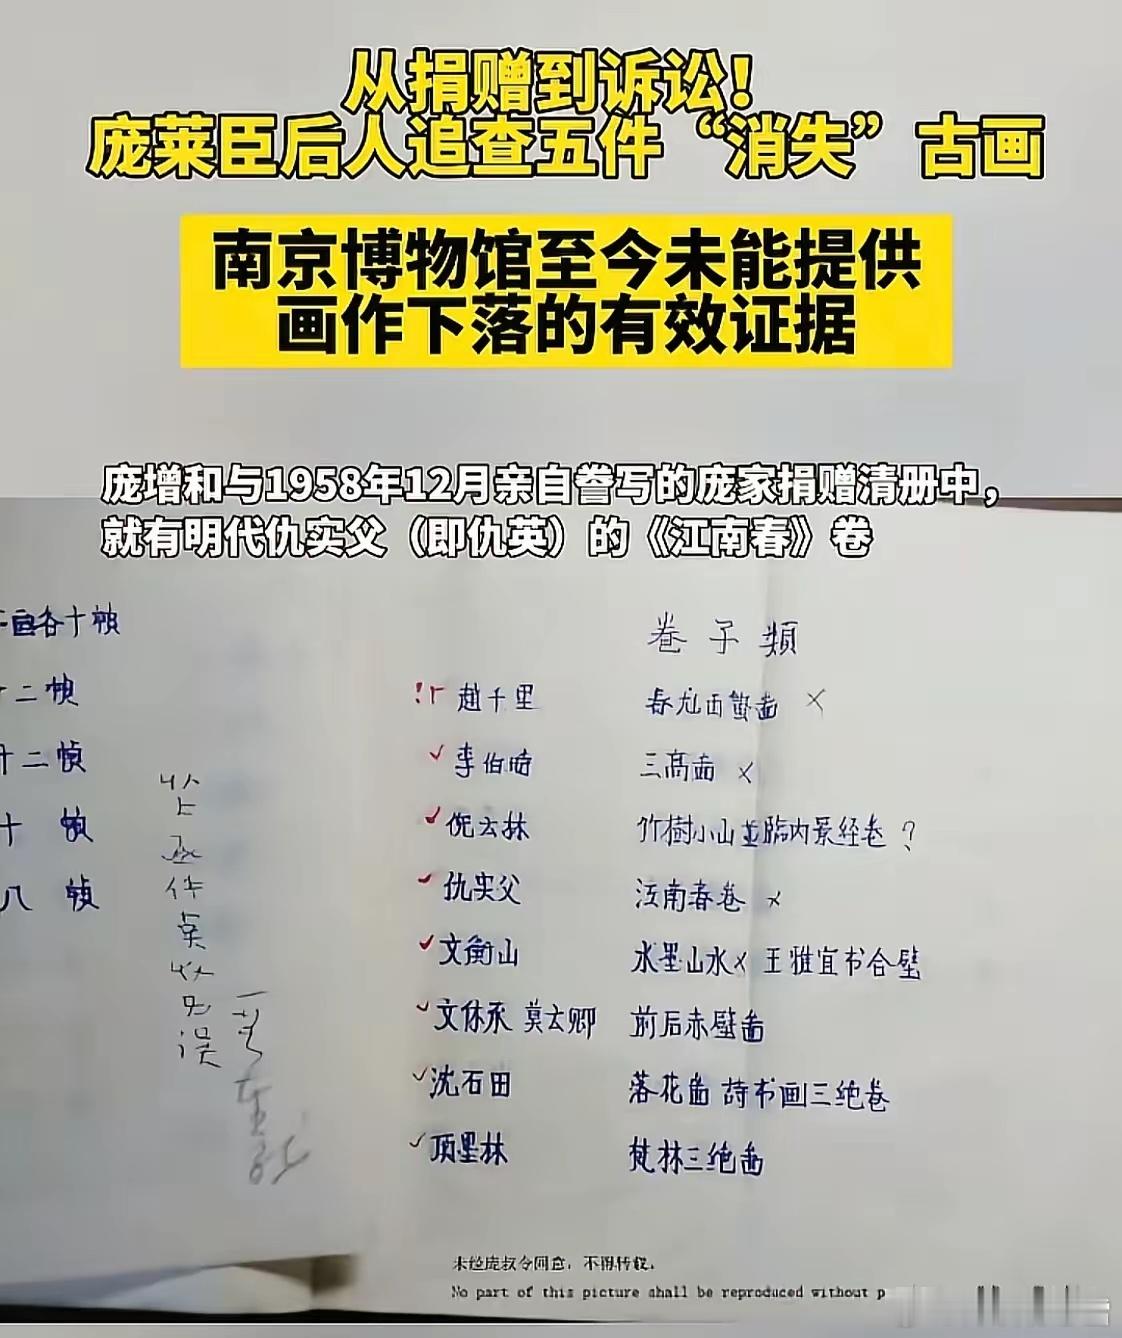 从捐赠到诉讼！
庞莱臣后人追查五件“消失”古画
南京博物馆至今未能提供
画作下落的有效证据
庞增和与1958年12月亲自誊写的庞家捐赠清册中，
就有明代仇实父（即仇英）的《江南春》卷
各十帧
十二帧
廿二帧
十帧
八帧
卷子類
趙千里 春龙 ×
李伯時 三高啚 ×
倪云林 竹樹小山並臨内景经卷？
仇实父 江南春卷 ×
文衡山 水墨山水× 王雅宜书合壁
文休承 莫云卿 前后赤壁啚
沈石田 落花啚 詩书画三绝卷
項墨林 梵林三绝啚
未经庞叔令同意，不得转载。
No part of this picture shall be reproduced without p